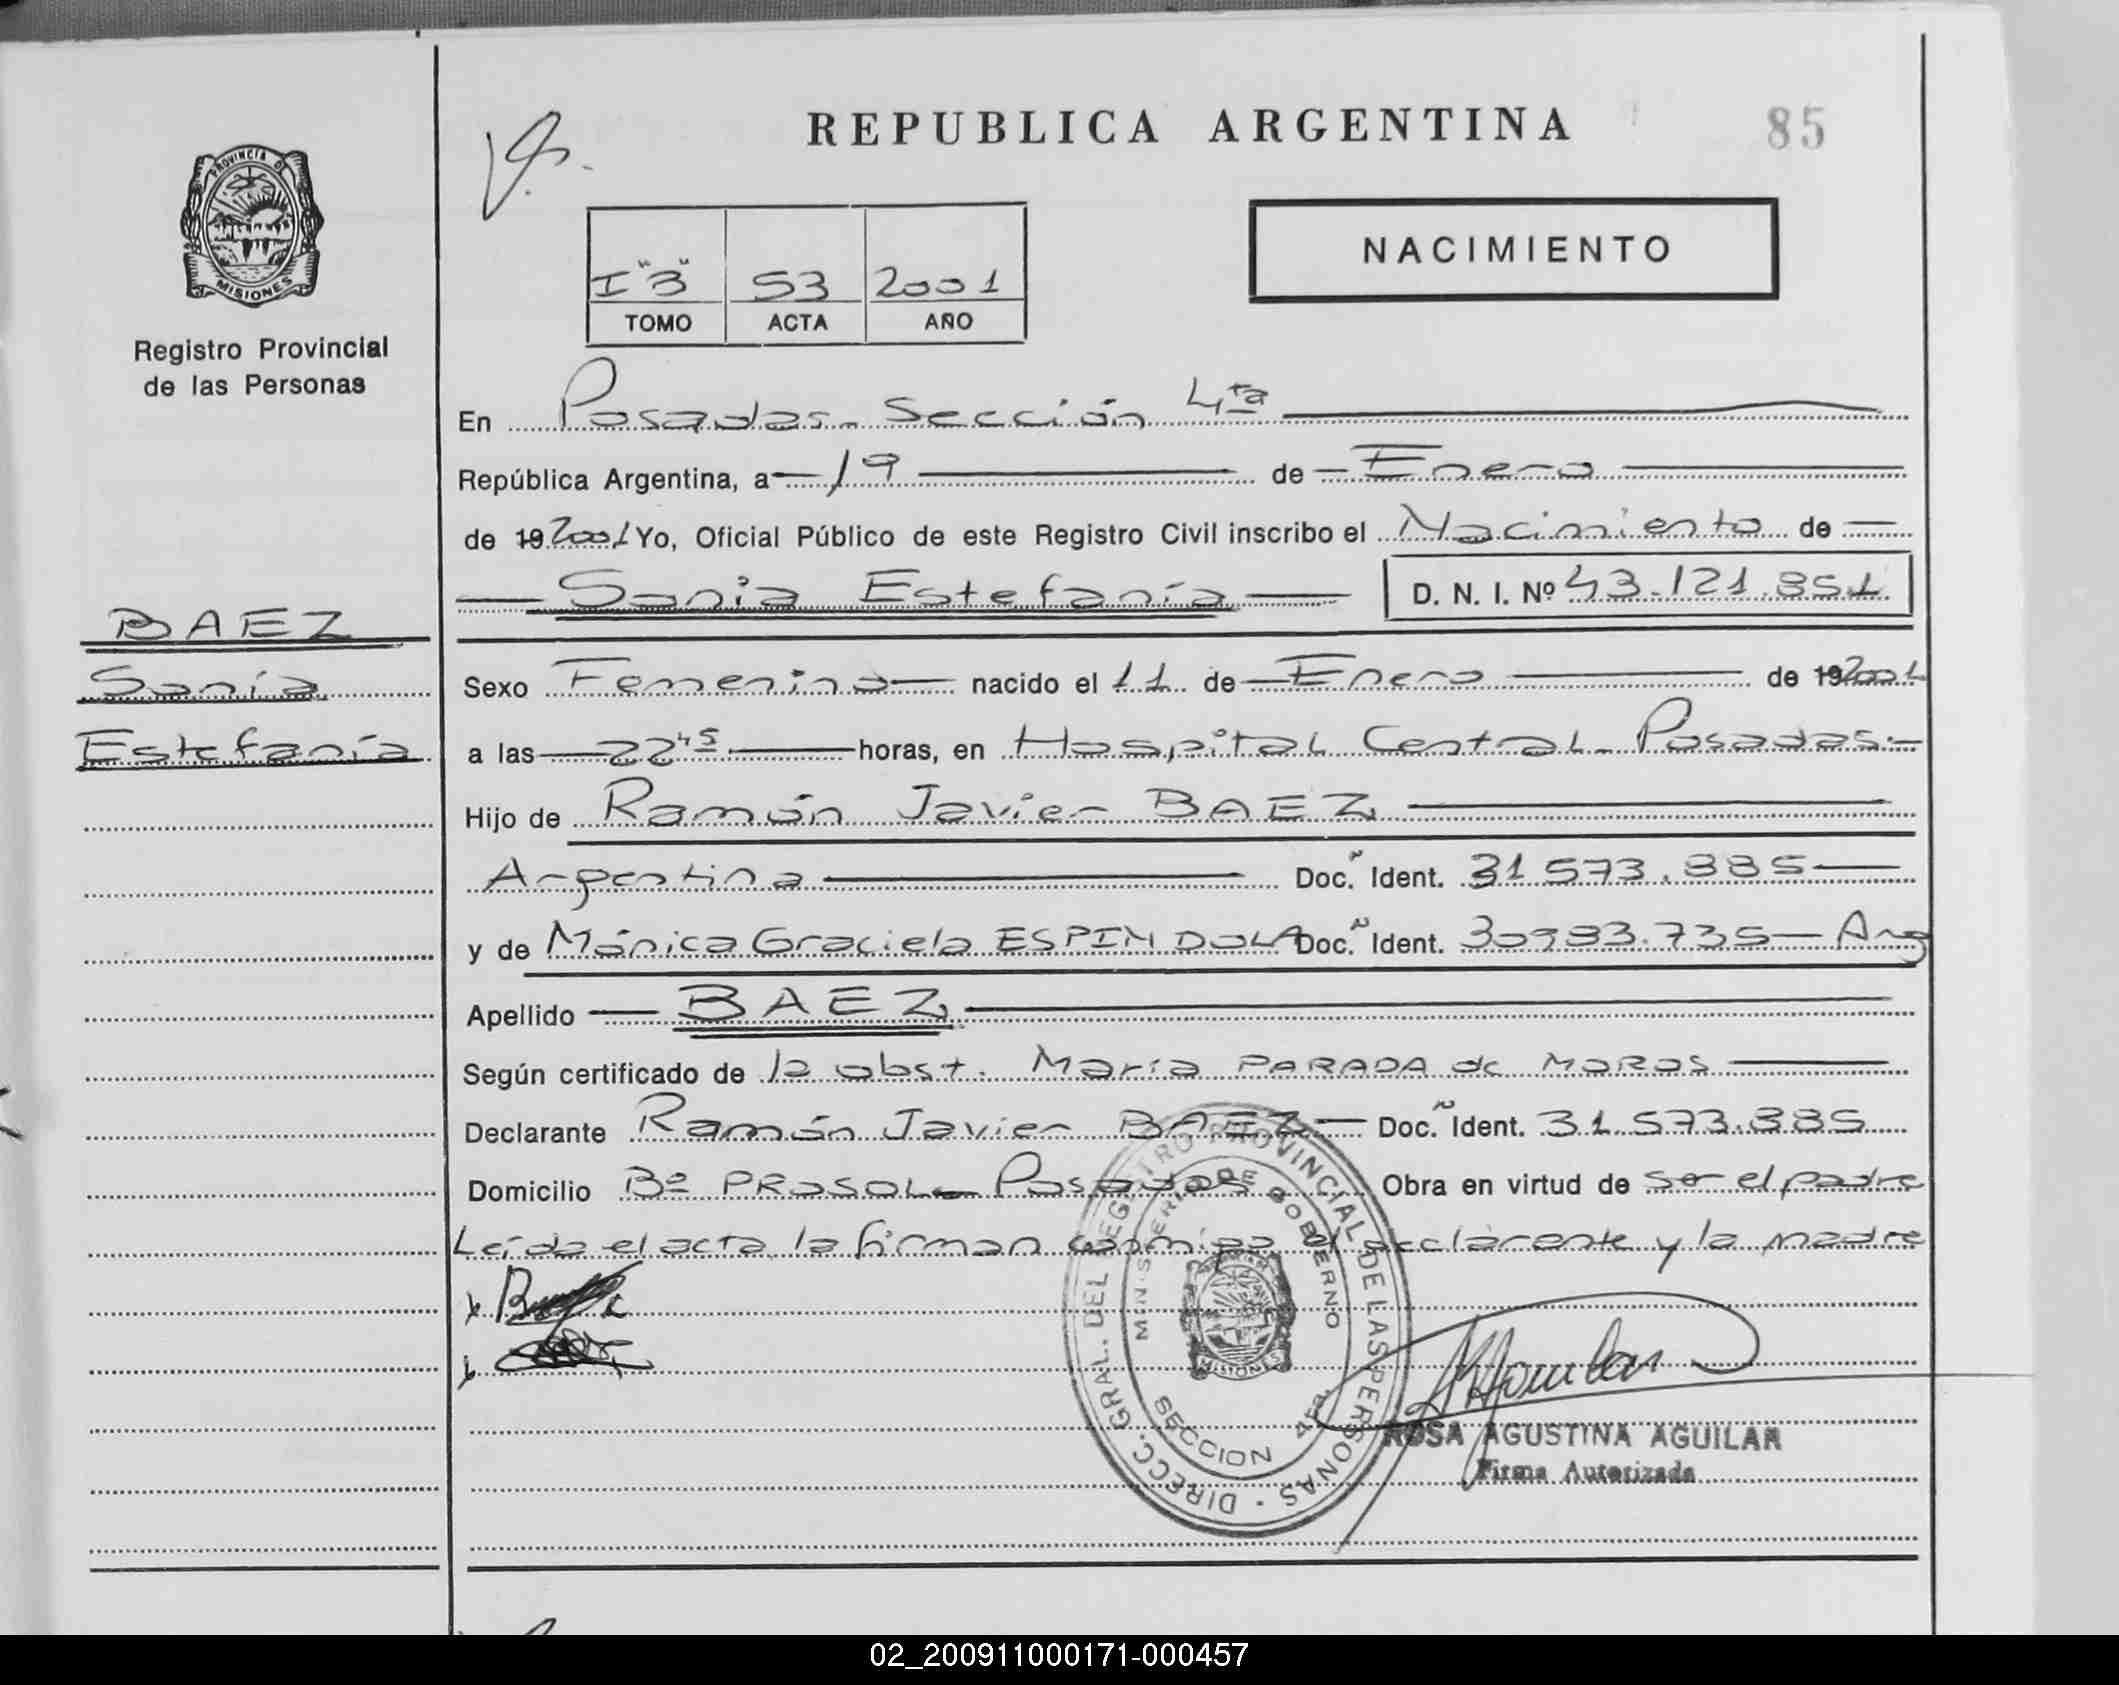 REPUBLICA ARGENTINA
85
PROVINCIA DE
MISIONES
Registro Provincial
de las Personas
NACIMIENTO
I "3" 53 2001
TOMO ACTA AÑO
En Posadas - Sección 4ta
República Argentina, a 19 de Enero
de 19 2001 Yo, Oficial Público de este Registro Civil inscribo el Nacimiento de
Sonia Estefanía D. N. I. Nº 43.121.851
BAEZ
Sonia
Estefanía
Sexo Femenino nacido el 11 de Enero de 19 2001
a las 22 45 horas, en Hospital Central - Posadas.-
Hijo de Ramón Javier BAEZ
Argentina Doc. Ident. 31.573.885
y de Mónica Graciela ESPINDOLA Doc. Ident. Arg
Apellido BAEZ
Según certificado de la obst. María PARADA de MOROS
Declarante Ramón Javier BAEZ Doc. Ident. 31.573.885
Domicilio Bº PROSOL - Posadas Obra en virtud de ser el padre
Leída el acta la firman conmigo el declarante y la madre
DIRECC. GRAL. DEL REGISTRO PROVINCIAL DE LAS PERSONAS
MINISTERIO DE GOBERNO
MISIONES
SECCION 4ta.
ROSA AGUSTINA AGUILAR
Firma Autorizada
02_200911000171-000457